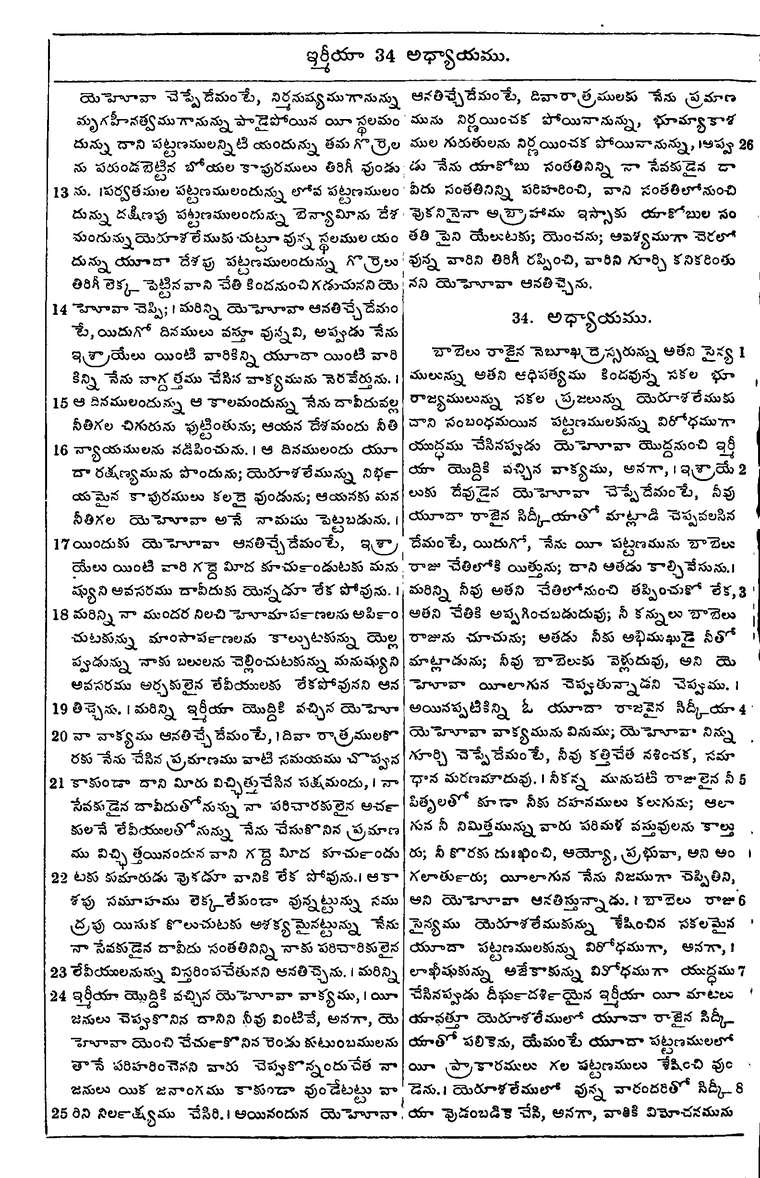 ఇర్మీయా 34 అధ్యాయము.
యెహెూవా చెప్పేదేమంటే, నిర్మనుష్యముగానున్ను
మృగహీనత్వముగానున్ను పాడైపోయిన యీ స్థలమం
దున్ను దాని పట్టణములన్నిటి యందున్ను తమ గొర్రెల
ను పరుండబెట్టిన బోయల కాపురములు తిరిగీ వుండు
13 ను. ।పర్వతముల పట్టణములందున్ను లోవ పట్టణములం
దున్ను దక్షిణపు పట్టణములందున్ను బెన్యామీను దేశ
మందున్ను యెరూశలేముకు చుట్టూ వున్న స్థలముల యం
దున్ను యూదా దేశపు పట్టణములందున్ను గొర్రెలు
తిరిగీ లెక్క పెట్టిన వాని చేతి కిందనుంచి గడుచునని యె
14 హెూవా చెప్పి; । మరిన్ని యెహెూవా ఆనతిచ్చేదేమం
టే, యిదుగో దినములు వస్తూ వున్నవి, అప్పుడు నేను
ఇశ్రాయేలు యింటి వారికిన్ని యూదా యింటి వారి
కిన్ని నేను వాగ్దత్తము చేసిన వాక్యమును నెరవేర్తును. ।
15 ఆ దినములందున్ను ఆ కాలమందున్ను నేను దావీదువల్ల
నీతిగల చిగురును పుట్టింతును; ఆయన దేశమందు నీతి
16 న్యాయములను నడిపించును. । ఆ దినములందు యూ
దా రక్షణ్యమును పొందును; యెరూశలేమున్ను నిర్భ
యమైన కాపురములు కలదై వుండును; ఆయనకు మన
నీతిగల యెహెూవా అనే నామము పెట్టబడును. ।
17 యిందుకు యెహెూవా ఆనతిచ్చేదేమంటే, ఇశ్రా
యేలు యింటి వారి గద్దె మీద కూర్చుండుటకు మను
ష్యుని అవసరము దావీదుకు యెన్నడూ లేక పోవును. ।
18 మరిన్ని నా ముందర నిలచి హెూమార్పణలను అర్పిం
చుటకున్ను మాంసార్పణలను కాల్చుటకున్ను యెల్ల
ప్పుడున్ను నాకు బలులను చెల్లించుటకున్ను మనుష్యుని
అవసరము అర్చకులైన లేవీయులకు లేకపోవునని ఆన
19 తిచ్చెను. । మరిన్ని ఇర్మీయా యొద్దికి వచ్చిన యెహెూ
20 వా వాక్యము ఆనతిచ్చేదేమంటే, ।దివా రాత్రములకొ
రకు నేను చేసిన ప్రమాణము వాటి సమయము చొప్పున
21 కాకుండా దాని మీరు విచ్ఛిత్తుచేసిన పక్షమందు, । నా
సేవకుడైన దావీదుతోనున్ను నా పరిచారకులైన అర్చ
కులనే లేవీయులతోనున్ను నేను చేసుకొనిన ప్రమాణ
ము విచ్ఛిత్తయినందున వాని గద్దె మీద కూర్చుండు
22 టకు కుమారుడు వొకడూ వానికి లేక పోవును.। ఆకా
శపు సమూహము లెక్కలేకుండా వున్నట్టున్ను సము
ద్రపు యిసుక కొలుచుటకు అశక్యమైనట్టున్ను నేను
నా సేవకుడైన దావీదు సంతతినిన్ని నాకు పరిచారికులైన
23 లేవీయులనున్ను విస్తరింపచేతునని ఆనతిచ్చెను. । మరిన్ని
24 ఇర్మీయా యొద్దికి వచ్చిన యెహెూవా వాక్యము, । యీ
జనులు చెప్పుకొనిన దానిని నీవు వింటివే, అనగా, యె
హెూవా యెంచి చేర్చుకొనిన రెండు కుటుంబములను
తానే పరిహరించెనని వారు చెప్పుకొన్నందుచేత నా
జనులు యిక జనాంగము కాకుండా వుండేటట్టు వా
25 రిని నిర్లక్ష్యము చేసిరి. । అయినందున యెహెూవా
ఆనతిచ్చేదేమంటే, దివారాత్రములకు నేను ప్రమాణ
మును నిర్ణయించక పోయినానున్ను, భూమ్యాకాశ
ముల గురుతులను నిర్ణయించక పోయినానున్ను, ।అప్పు 26
డు నేను యాకోబు సంతతినిన్ని నా సేవకుడైన దా
వీదు సంతతినిన్ని పరిహరించి, వాని సంతతిలోనుంచి
వొకనినైనా అబ్రాహాము ఇస్సాకు యాకోబుల సం
తతి పైని యేలుటకు; యెంచను; ఆవశ్యముగా చెరలో
వున్న వారిని తిరిగీ రప్పించి, వారిని గూర్చి కనికరింతు
నని యెహెూవా ఆనతిచ్చెను.
34. అధ్యాయము.
బాబెలు రాజైన నెబూఖద్రెస్సరున్ను అతని సైన్య 1
ములున్ను అతని ఆధిపత్యము కిందవున్న సకల భూ
రాజ్యములున్ను సకల ప్రజలున్ను యెరూశలేముకు
దాని సంబంధమయిన పట్టణములకున్ను విరోధముగా
యుద్ధము చేసినప్పుడు యెహెూవా యొద్దనుంచి ఇర్మీ
యా యొద్దికి వచ్చిన వాక్యము, అనగా, ।ఇశ్రాయే 2
లుకు దేవుడైన యెహెూవా చెప్పేదేమంటే, నీవు
యూదా రాజైన సిద్కీయాతో మాట్లాడి చెప్పవలసిన
దేమంటే, యిదుగో, నేను యీ పట్టణమును బాబెలు
రాజు చేతిలోకి యిత్తును; దాని ఆతడు కాల్చివేసును.।
మరిన్ని నీవు అతని చేతిలోనుంచి తప్పించుకో లేక, 3
అతని చేతికి అప్పగించబడుదువు; నీ కన్నులు బాబెలు
రాజును చూచును; అతడు నీకు అభిముఖుడై నీతో
మాట్లాడును; నీవు బాబెలుకు వెళ్లుదువు, అని యె
హెూవా యీలాగున చెప్పుతున్నాడని చెప్పుము. ।
అయినప్పటికిన్ని ఓ యూదా రాజువైన సిద్కీయా 4
యెహెూవా వాక్యమును వినుము; యెహెూవా నిన్ను
గూర్చి చెప్పేదేమంటే, నీవు కత్తిచేత నశించక, సమా
ధాన మరణమౌదువు. । నీకన్న మునుపటి రాజులైన నీ 5
పితృలతో కూడా నీకు దహనములు కలుగును; ఆలా
గున నీ నిమిత్తమున్ను వారు పరిమళ వస్తువులను కాల్తు
రు; నీ కొరకు దుఃఖించి, అయ్యో, ప్రభువా, అని అం
గలార్తురు; యీలాగున నేను నిజముగా చెప్పితిని,
అని యెహెూవా ఆనతిస్తున్నాడు. । బాబెలు రాజు 6
సైన్యము యెరూశలేముకున్ను శేషించిన సకలమైన
యూదా పట్టణములకున్ను విరోధముగా, అనగా, ।
లాఖీషుకున్ను అజేకాకున్ను విరోధముగా యుద్ధము 7
చేసినప్పుడు దీర్ఘదర్శియైన ఇర్మీయా యీ మాటలు
యావత్తూ యెరూశలేములో యూదా రాజైన సిద్కీ
యాతో పలికెను, యేమంటే యూదా పట్టణములలో
యీ ప్రాకారములు గల పట్టణములు శేషించి వుం
డెను. । యెరూశలేములో వున్న వారందరితో సిద్కీ 8
యా వొడంబడికె చేసి, అనగా, వాతికి విమోచనమును